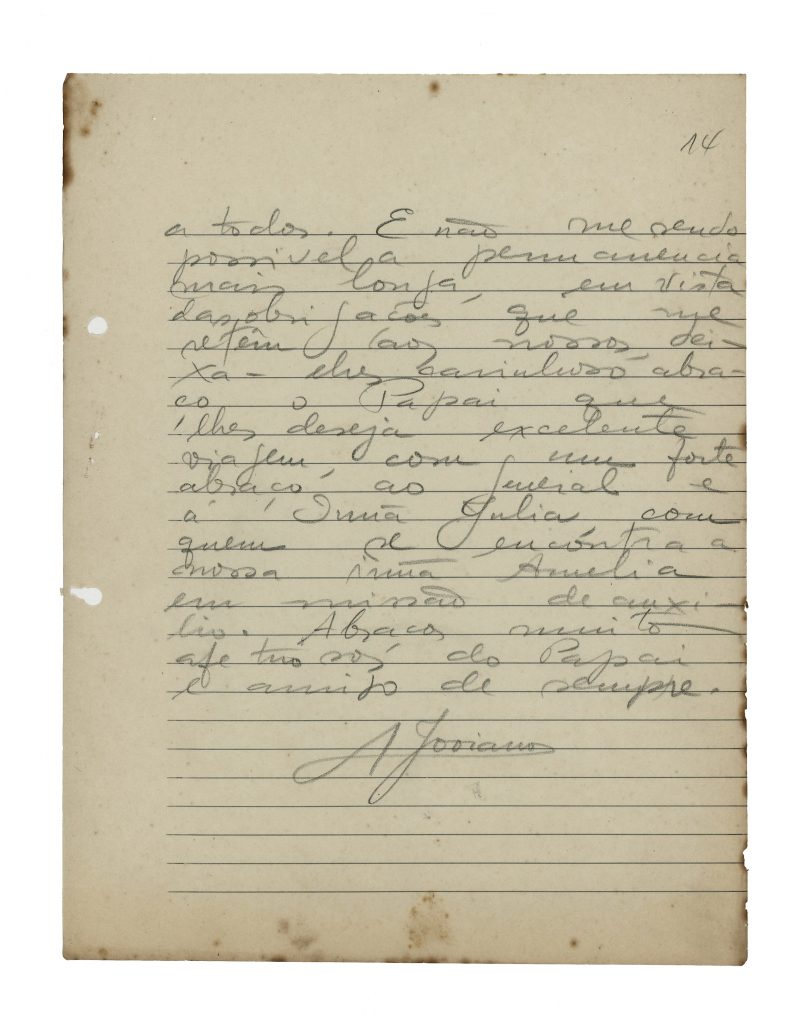 14
a todos. E não me sendo
possivel a permanencia
mais longa, em vista
das obrigações que me
retêm aos nossos, dei-
xa-lhes carinhoso abra-
ço o Papai que
lhes deseja excelente
viagem, com um forte
abraço ao General e
á Irmã Julia, com
quem se encontra a
nossa irmã Amelia
em missão de auxi-
lio. Abraços muito
afetuósos do Papai
e amigo de sempre.
A Joviano